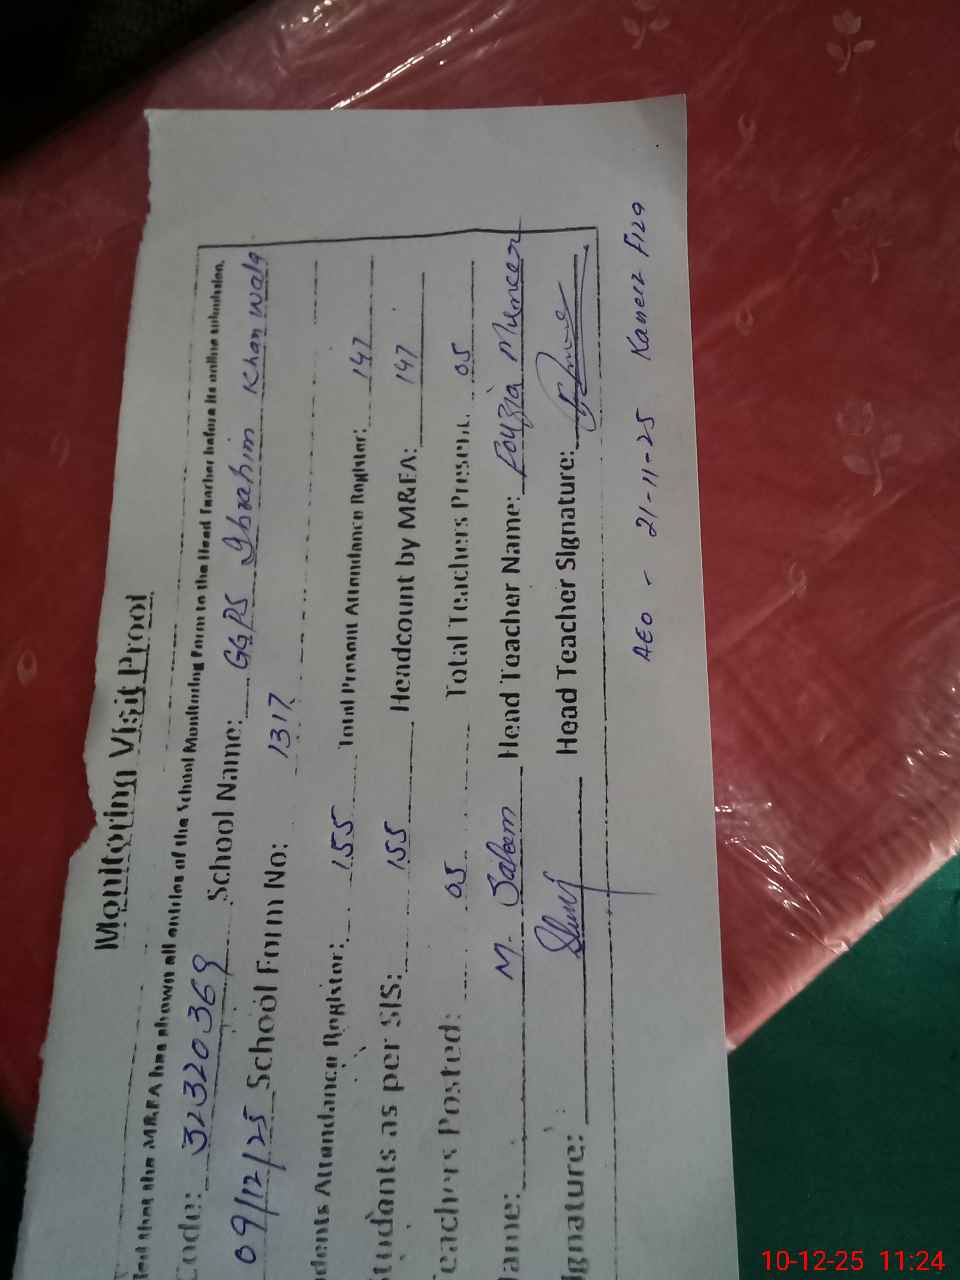 Monitoring Visit Proof
that the MREA has shown all entries of the School Monitoring Form to the Head Teacher before its online submission.
Code: 32320369 School Name: GGPS Ibrahim Khan Wala
09/12/25 School Form No: 1317
dents Attendance Register: 155 Total Present Attendance Register: 147
tudents as per SIS: 155 Headcount by MREA: 147
eachers Posted: 05 Total Teachers Present: 05
ame: M. Saleem Head Teacher Name: Fouzia Muneer
ignature: Head Teacher Signature:
AEO - 21-11-25 Kaneiz Fiza
10-12-25 11:24